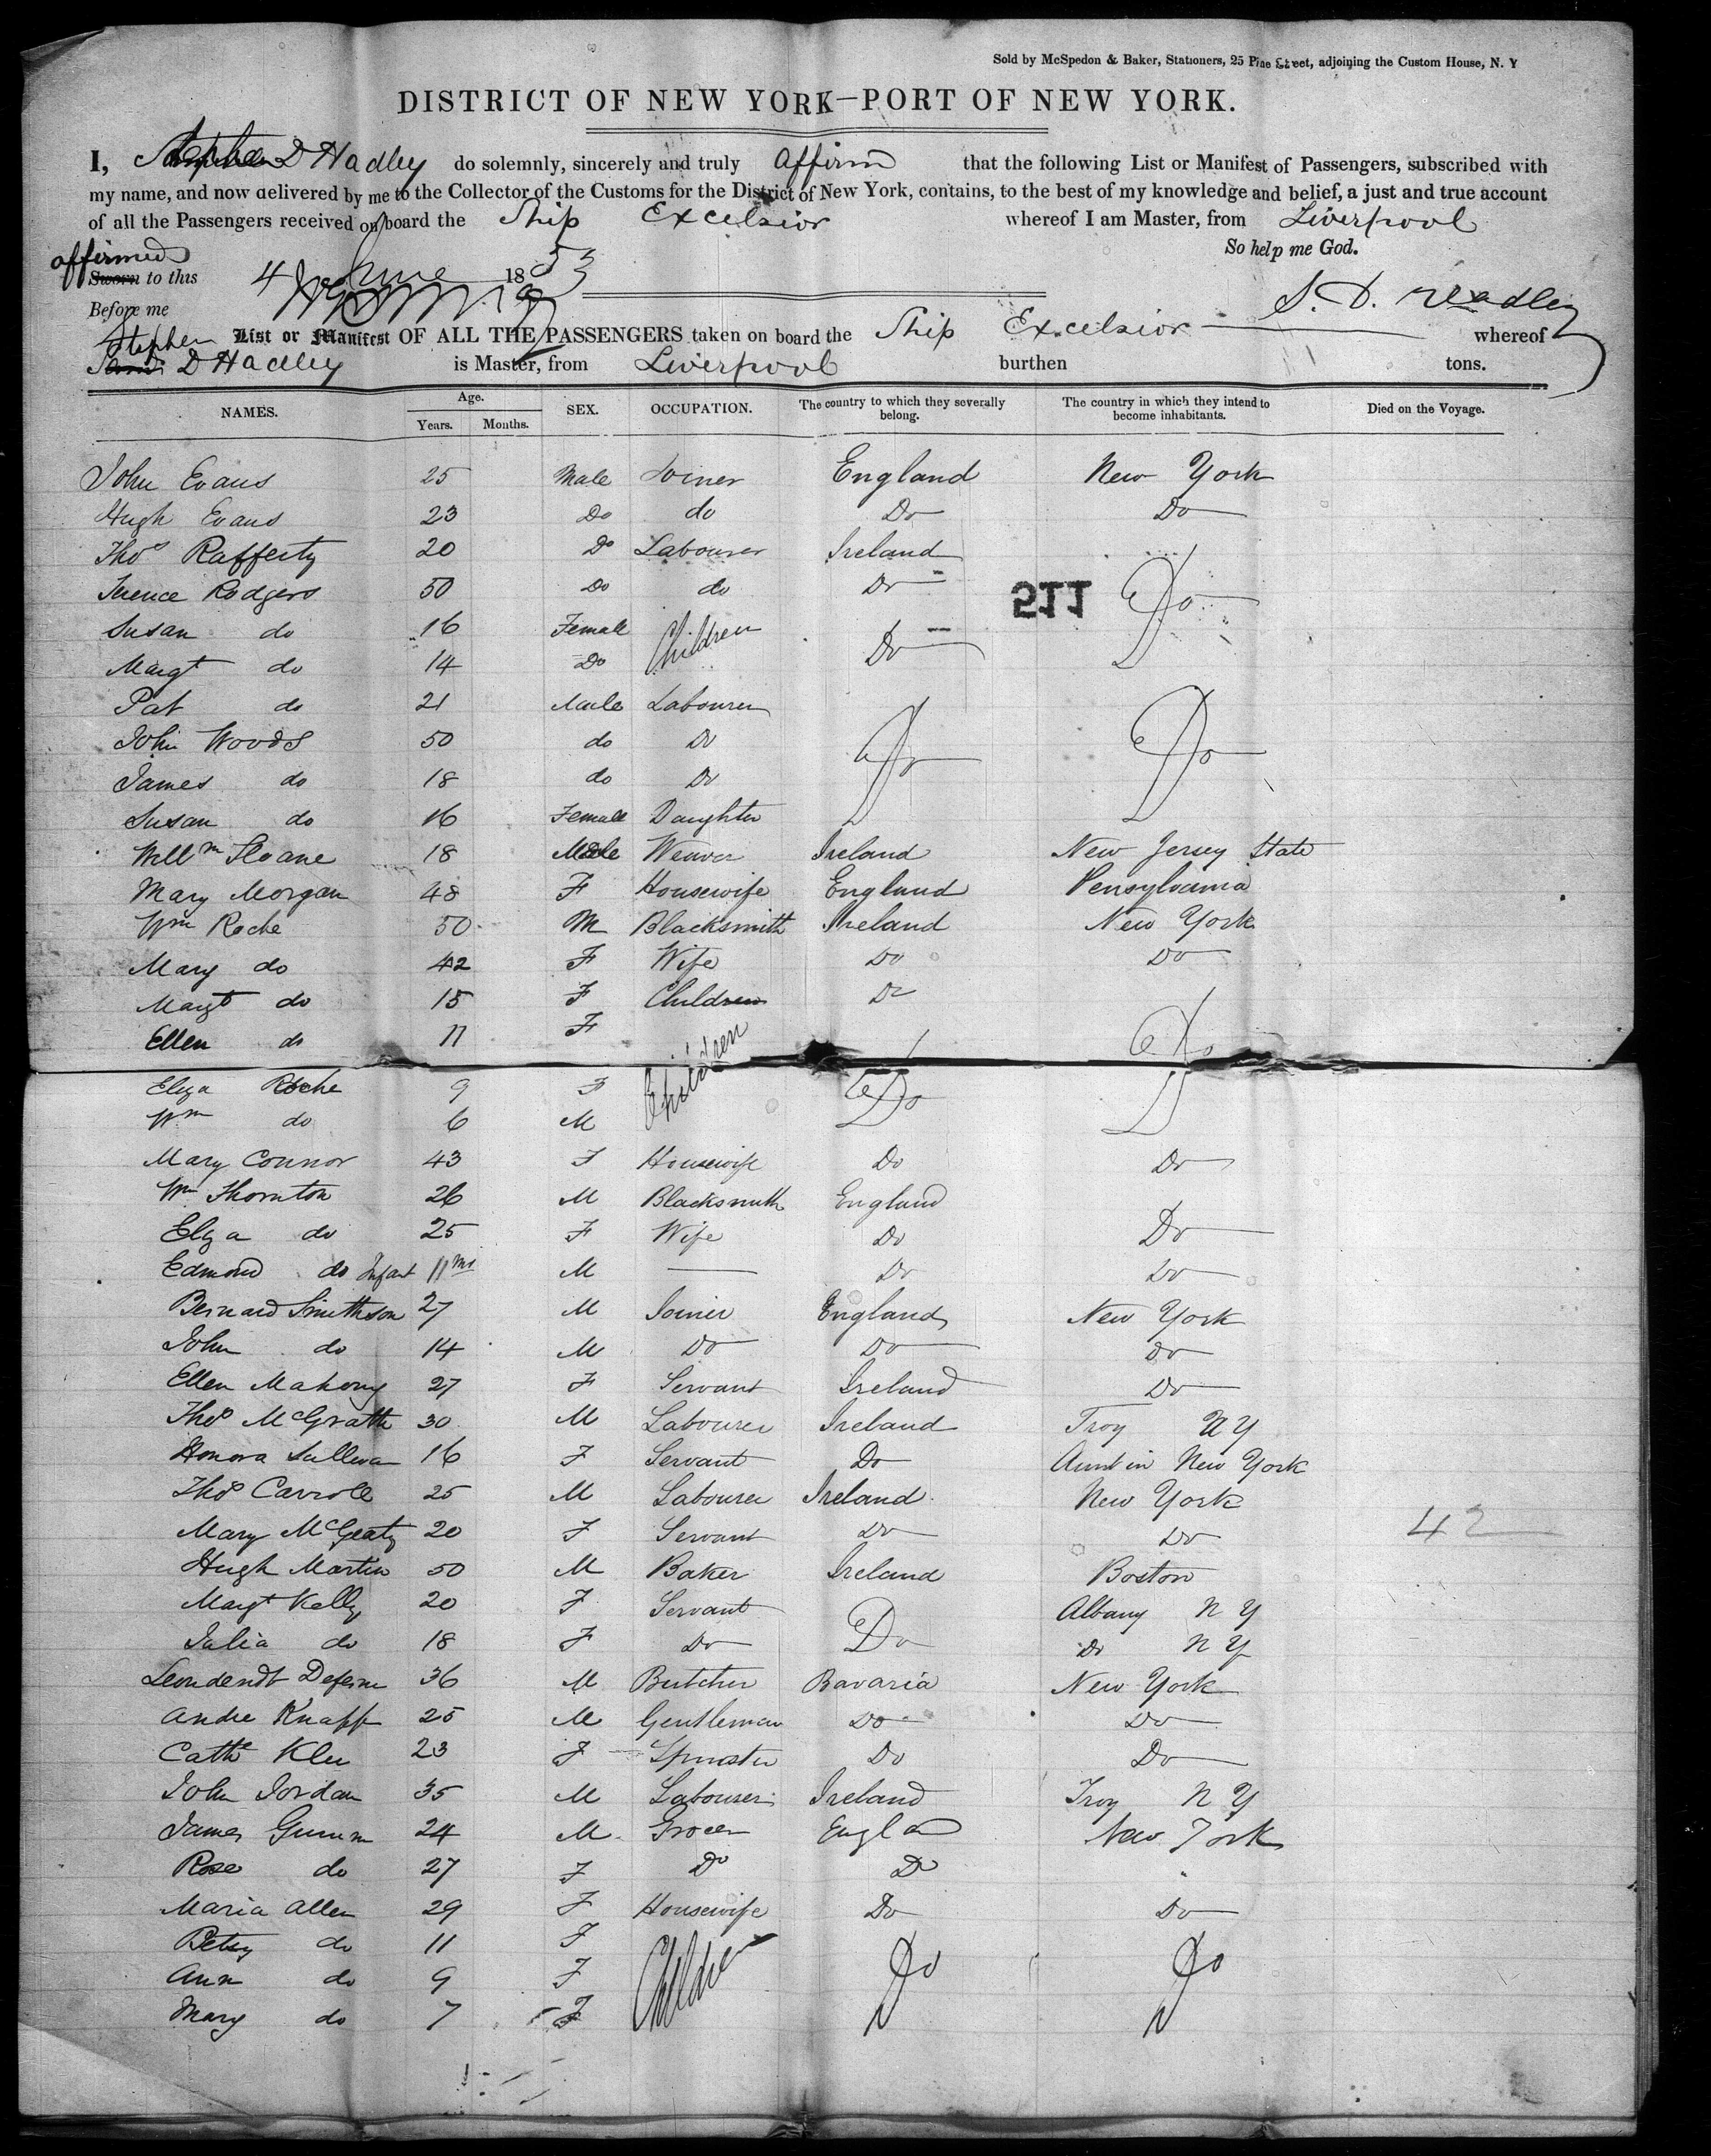 Sold by McSpedon & Baker, Stationers, 25 Pine Street, adjoining the Custom House, N. Y
DISTRICT OF NEW YORK—PORT OF NEW YORK.
I, Stephen D Hadley do solemnly, sincerely and truly affirm that the following List or Manifest of Passengers, subscribed with
my name, and now delivered by me to the Collector of the Customs for the District of New York, contains, to the best of my knowledge and belief, a just and true account
of all the Passengers received on board the Ship Excelsior whereof I am Master, from Liverpool
So help me God.
affirmed
Sworn to this 4 June 1853
Before me
S. D. Hadley
List or Manifest OF ALL THE PASSENGERS taken on board the Ship Excelsior whereof
Stephen
D Hadley is Master, from Liverpool burthen tons.
NAMES. Age. Years. Months. SEX. OCCUPATION. The country to which they severally belong. The country in which they intend to become inhabitants. Died on the Voyage.
John Evans 25 Male Joiner England New York
Hugh Evans 23 Do do Do Do
Thos Rafferty 20 Do Labourer Ireland
Terence Rodgers 50 Do do Do 511 Do
Susan do 16 Female Children
Margt do 14 Do Do
Pat do 21 Male Labourer
John Woods 50 do Do Do Do
James do 18 do Do
Susan do 16 Female Daughter
Willm Sloane 18 Male Weaver Ireland New Jersey State
Mary Morgan 48 F Housewife England Pensylvania
Wm Roche 50 M Blacksmith Ireland New York
Mary do 42 F Wife Do Do
Margt do 15 F Children Do
Ellen do 11 F Do
Eliza Roche 9 F Children Do
Wm do 6 M
Mary Connor 43 F Housewife Do Do
Wm Thornton 26 M Blacksmith England
Eliza do 25 F Wife Do Do
Edmond do Infant 11 Ms M — Do Do
Bernard Smithson 27 M Joiner England New York
John do 14 M Do Do Do
Ellen Mahony 27 F Servant Ireland Do
Thos McGrath 30 M Labourer Ireland Troy N Y
Honora Sullivan 16 F Servant Do Aunt in New York
Thos Carroll 25 M Labourer Ireland New York
Mary McGeaty 20 F Servant Do Do 42
Hugh Martin 50 M Baker Ireland Boston
Margt Kelly 20 F Servant Albany N Y
Julia do 18 F Do Do Do N Y
36 M Butcher Bavaria New York
Andre Knapp 25 M Gentleman Do Do
Cathe Klee 23 F Spinster Do Do
John Jordan 35 M Labourer Ireland Troy N Y
James 24 M Grocer England New York
Rose do 27 F Do Do
Maria Allen 29 F Housewife Do Do
Betsy do 11 F
Ann do 9 F Children Do Do
Mary do 7 F